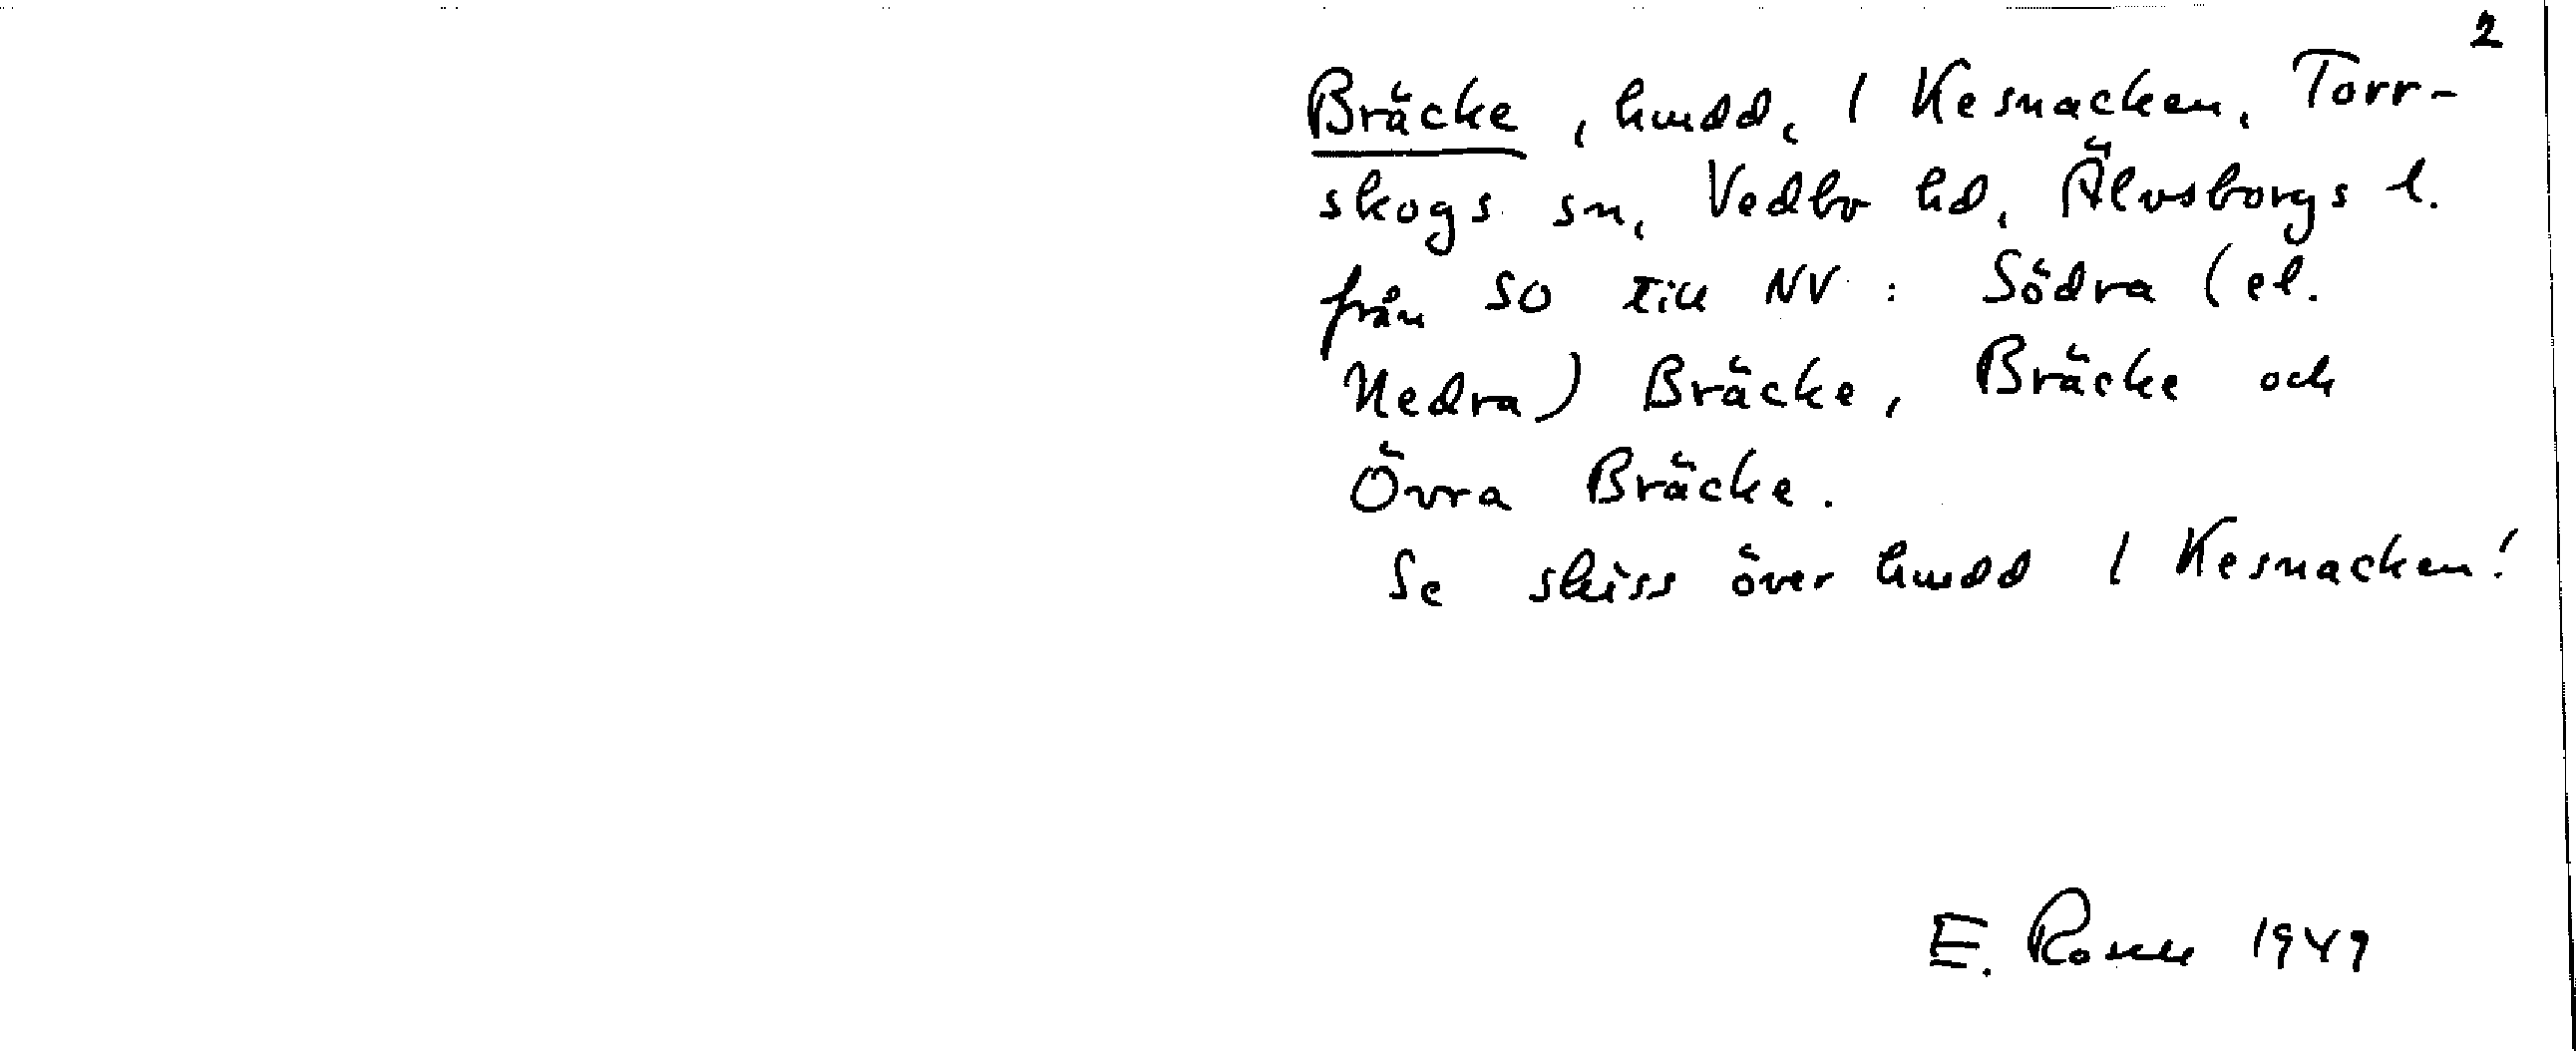 2
Bräcke, hmdd, 1 Kesnacken, Torr-
skogs sn, Vedbo hd, Älvsborgs l.
från SO till NV: Södra (el.
Nedra) Bräcke, Bräcke och
Övra Bräcke.
Se skiss över hmdd 1 Kesnacken!
E. Rosell 1949